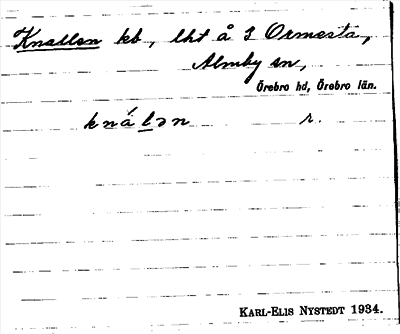 Knallen kb, lht å S Ormesta,
Almby sn,
Örebro hd, Örebro län.
knálən r.
KARL-ELIS NYSTEDT 1934.